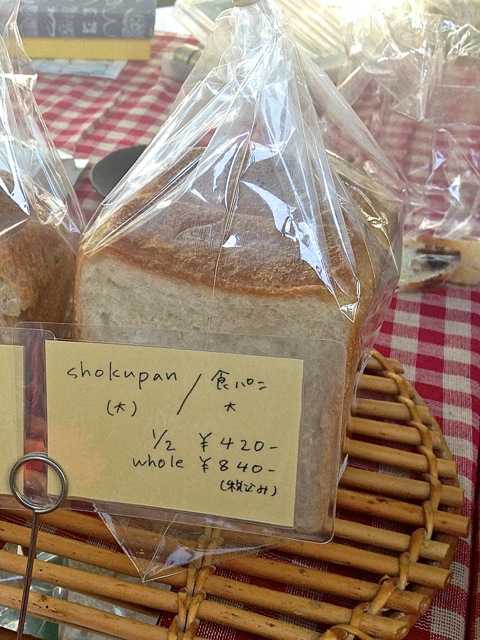 shokupan / 食パン
(大) 大
1/2 ¥420-
whole ¥840-
(税込み)